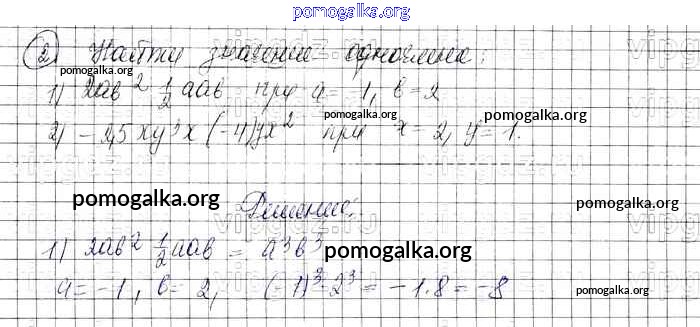 pomogalka.org
② Найти значение одночлена:
pomogalka.org
1) 2ab² 1/2 aab при a = -1, b = 2
pomogalka.org
2) -2,5xy³x(-4)yx² при x = 2, y = 1.
pomogalka.org
pomogalka.org pomogalka.org
Решение:
1) 2ab² 1/2 aab = a³b³
pomogalka.org
a = -1, b = 2, (-1)³·2³ = -1·8 = -8
pomogalka.org